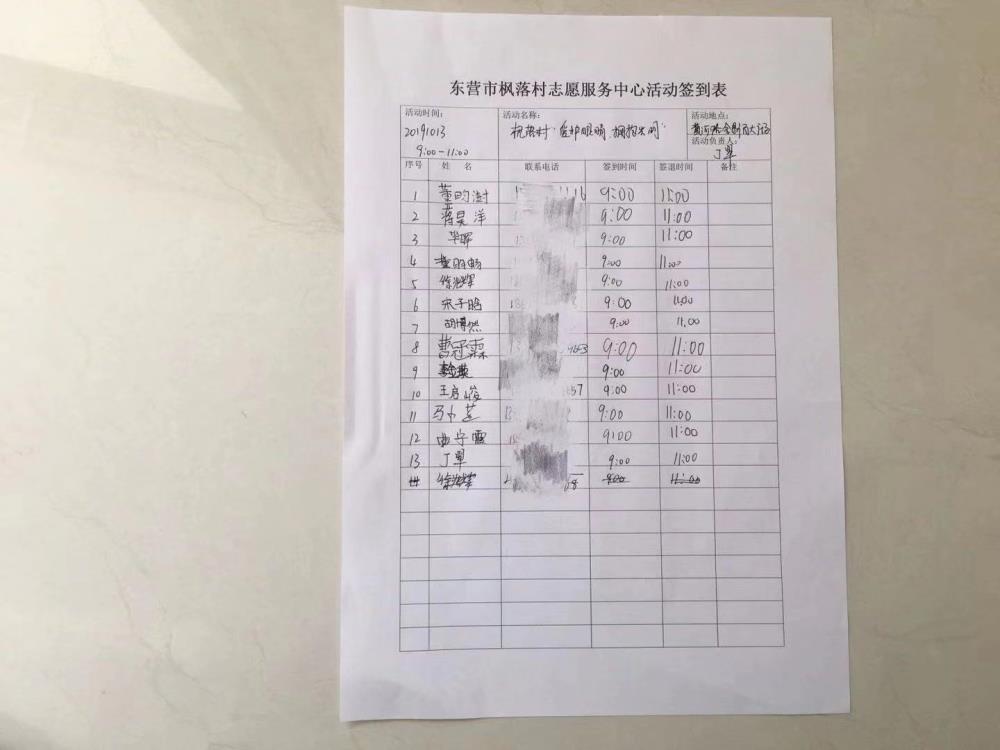 东营市枫落村志愿服务中心活动签到表
活动时间: 活动名称: 活动地点:
20191013 枫落村"爱护眼睛 拥抱光明"
9:00-11:00 活动负责人:
丁单
序号 姓 名 联系电话 签到时间 签退时间 备注
1 9:00 11:00
2 蒋昊洋 9:00 11:00
3 华晖 9:00 11:00
4 9:00 11:00
5 徐海辉 9:00 11:00
6 宋子晗 9:00 11:00
7 胡博然 9:00 11:00
8 曹冠霖 9:00 11:00
9 9:00 11:00
10 王启峻 57 9:00 11:00
11 9:00 11:00
12 曲宇霏 9:00 11:00
13 丁单 9:00 11:00
14 徐海辉 68 9:00 11:00